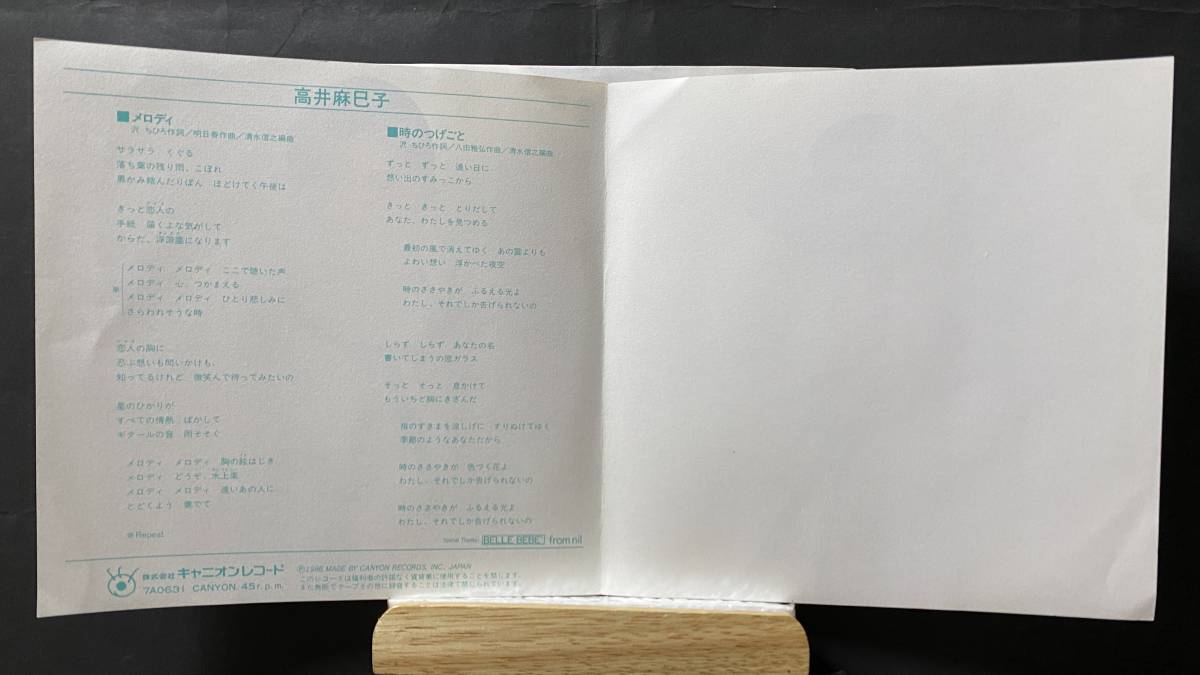 高井麻巳子
■メロディ
沢 ちひろ作詞／明日香作曲／清水信之編曲
サラサラ くぐる
落ち葉の残り雨、こぼれ
黒かみ結んだりぼん ほどけてく午後は
きっと恋人の
手紙 届くよな気がして
からだ、浮游靈になります
メロディ メロディ ここで聴いた声
メロディ 心、つかまえる
※ メロディ メロディ ひとり悲しみに
さらわれそうな時
恋人の胸に
忍ぶ想いも問いかけも、
知ってるけれど 微笑んで待ってみたいの
星のひかりが
すべての情熱 ぼかして
ギタールの音 雨そそぐ
メロディ メロディ 胸の絃はじき
メロディ どうぞ、水上楽
メロディ メロディ 遠いあの人に
とどくよう 奏でて
※Repeat
■時のつげごと
沢 ちひろ作詞／八田雅弘作曲／清水信之編曲
ずっと ずっと 遠い日に
想い出のすみっこから
きっと きっと とりだして
あなた、わたしを見つめる
最初の風で消えてゆく あの雲よりも
よわい想い 浮かべた夜空
時のささやきが ふるえる光よ
わたし、それでしか告げられないの
しらず しらず あなたの名
書いてしまうの窓ガラス
そっと そっと 息かけて
もういちど胸にきざんだ
指のすきまを涼しげに すりぬけてゆく
季節のようなあなただから
時のささやきが 色づく花よ
わたし、それでしか告げられないの
時のささやきが ふるえる光よ
わたし、それでしか告げられないの
Special Thanks BELLE BEBE from nil
株式会社 キャニオンレコード
7A0631 CANYON. 45r.p.m.
Ⓟ1986 MADE BY CANYON RECORDS, INC., JAPAN
このレコードは権利者の許諾なく賃貸業に使用することを禁じます。
また無断でテープその他に録音することは法律で禁じられています。